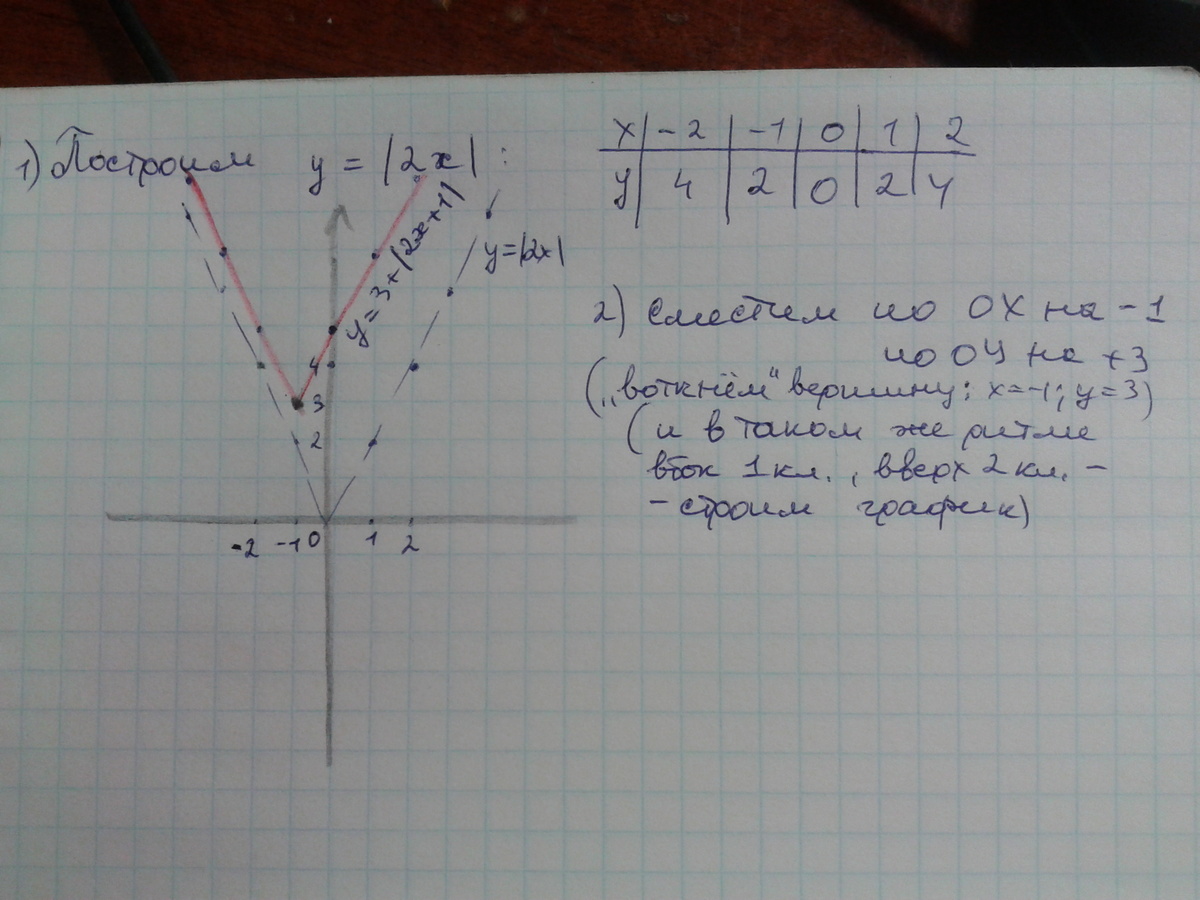 1) Построим y = |2x| :
x | -2 | -1 | 0 | 1 | 2
y | 4 | 2 | 0 | 2 | 4
y = 3+|2x+1|
y=|2x|
4
3
2
-2 -1 0 1 2
2) Сместим по OX на -1
по OY на +3
(„воткнём" вершину: x=-1; y=3)
(и в таком же ритме
вбок 1 кл., вверх 2 кл. -
- строим график)